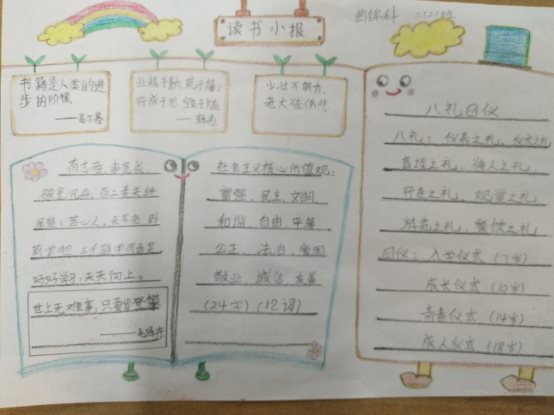 读书小报
二(二)班
书籍是人类的进
步的阶梯。
——高尔基
业精于勤,荒于嬉;
行成于思,毁于随
——韩愈
少壮不努力,
老大徒伤悲
有志者,事竟成,
破釜沉舟,百二秦关终
属楚;苦心人,天不负,卧
薪尝胆,三千越甲可吞吴
好好学习,天天向上。
世上无难事,只要肯登攀
——毛泽东
社会主义核心价值观:
富强、民主、文明
和谐、自由、平等
公正、法治、爱国
敬业、诚信、友善
(24字)(12词)
八礼四仪
八礼:仪表之礼、仪式之礼
言谈之礼、待人之礼、
行走之礼、观赏之礼、
游览之礼、餐饮之礼
四仪:入学仪式(7岁)
成长仪式(10岁)
青春仪式(14岁)
成人仪式(18岁)